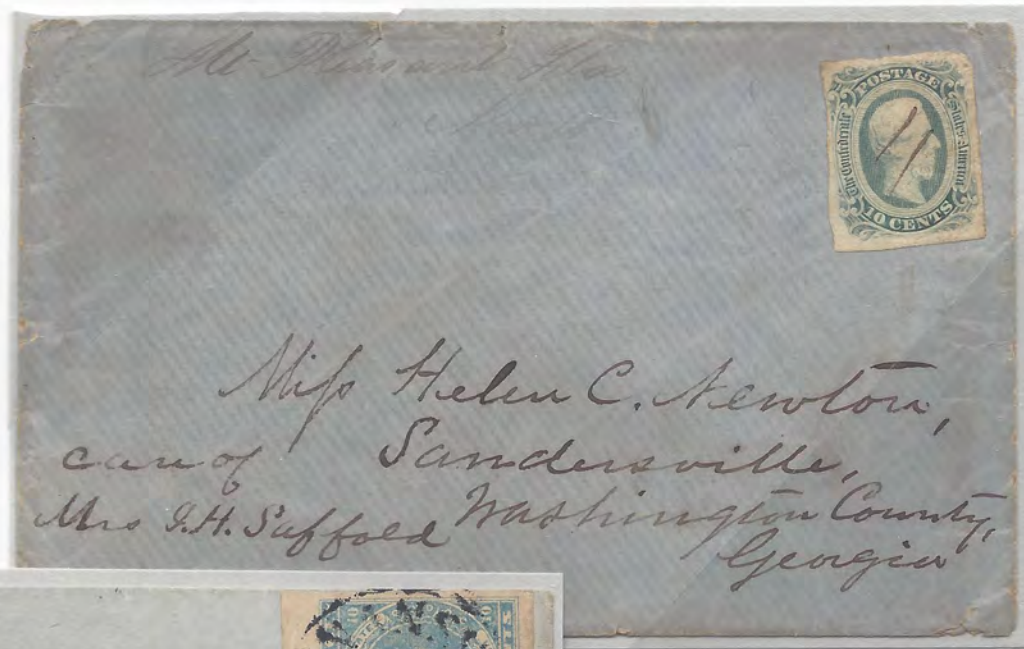 Mt Pleasant Fla
POSTAGE
The Confederate States America
10 CENTS
Miss Helen C. Newton,
care of Sandersville,
Mrs I. H. Saffold Washington County,
Georgia
10 10